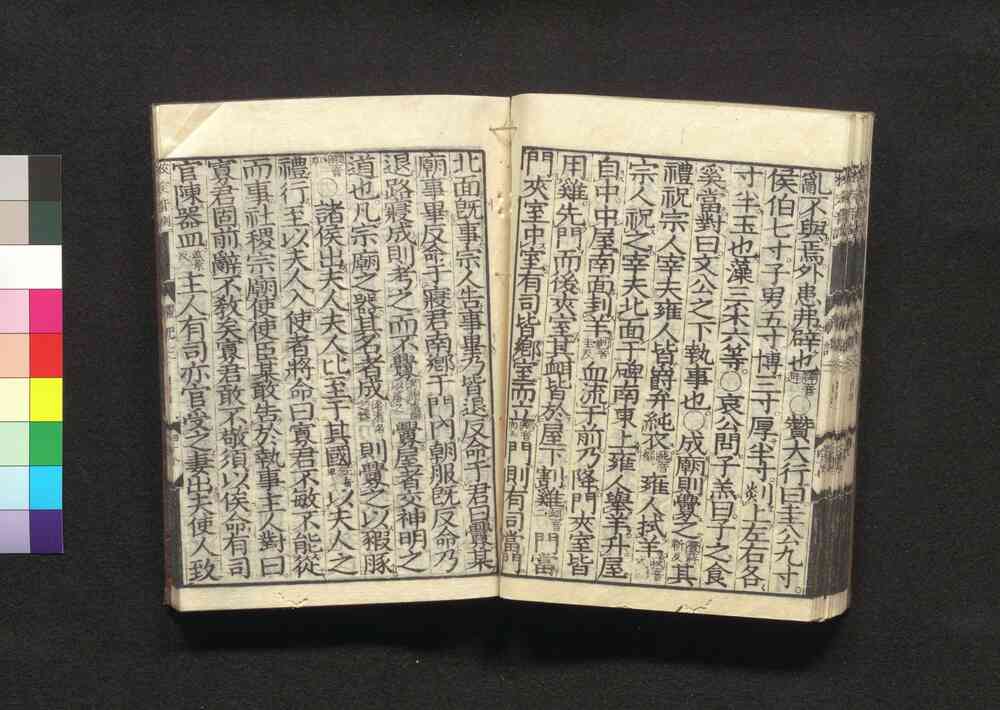 亂不與焉外患弗辟也〇贊大行曰圭公九寸
侯伯七寸子男五寸博三寸厚半寸剡上左右各
寸半玉也藻三采六等〇哀公問子羔曰子之食
奚當對曰文公之下執事也〇成廟則釁之其
禮祝宗人宰夫雍人皆爵弁純衣雍人拭羊
宗人祝之宰夫北面于碑南東上雍人舉羊升屋
自中中屋南面刲羊血流于前乃降門夾室皆
用雞先門而後夾室其衈皆於屋下割雞門當
門夾室中室有司皆鄉室而立門則有司當門
北面既事宗人告事畢乃皆退反命于君曰釁某
廟事畢反命于寢君南鄉于門內朝服既反命乃
退路寢成則考之而不釁釁屋者交神明之
道也凡宗廟之器其名者成則釁之以豭豚
〇諸侯出夫人夫人比至于其國以夫人之
禮行至以夫人入使者將命曰寡君不敏不能從
而事社稷宗廟使使臣某敢告於執事主人對曰
寡君固前辭不教矣寡君敢不敬須以俟命有司
官陳器皿主人有司亦官受之妻出夫使人致